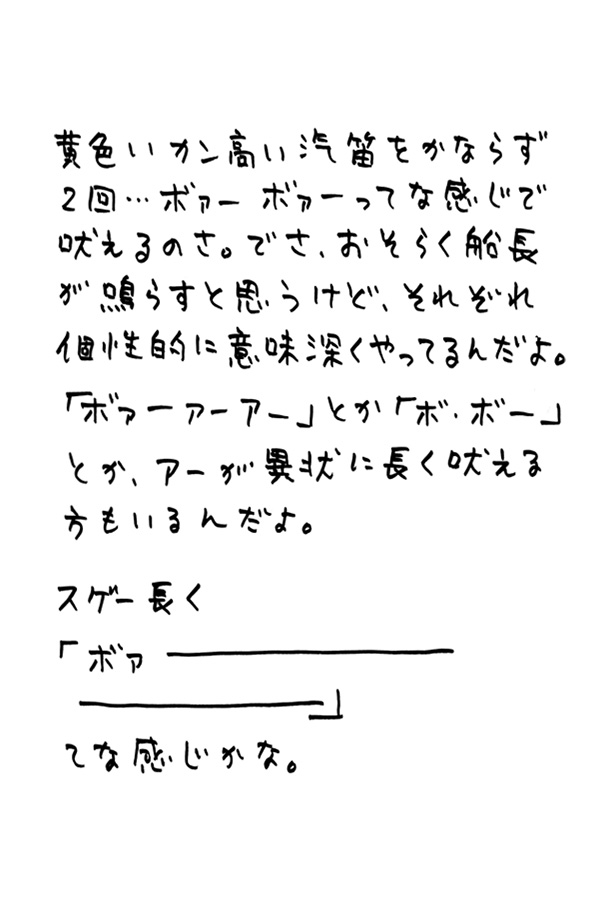 黄色いカン高い汽笛をかならず
2回…ボァー ボァーってな感じで
吠えるのさ。でさ、おそらく船長
が鳴らすと思うけど、それぞれ
個性的に意味深くやってるんだよ。
「ボァーァーアー」とか「ボ・ボー」
とか、アーが異状に長く吠える
方もいるんだよ。
スゲー長く
「ボァ――――――――
――――――――」
てな感じかな。